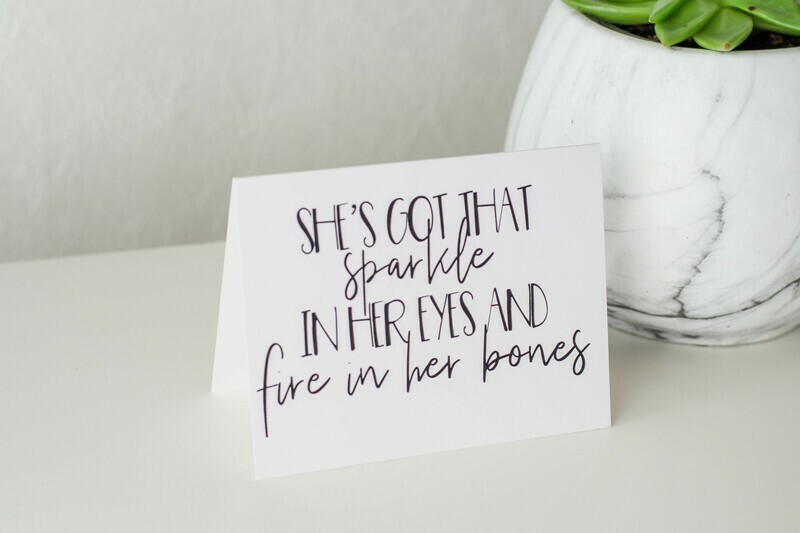 SHE'S GOT THAT
sparkle
IN HER EYES AND
fire in her bones